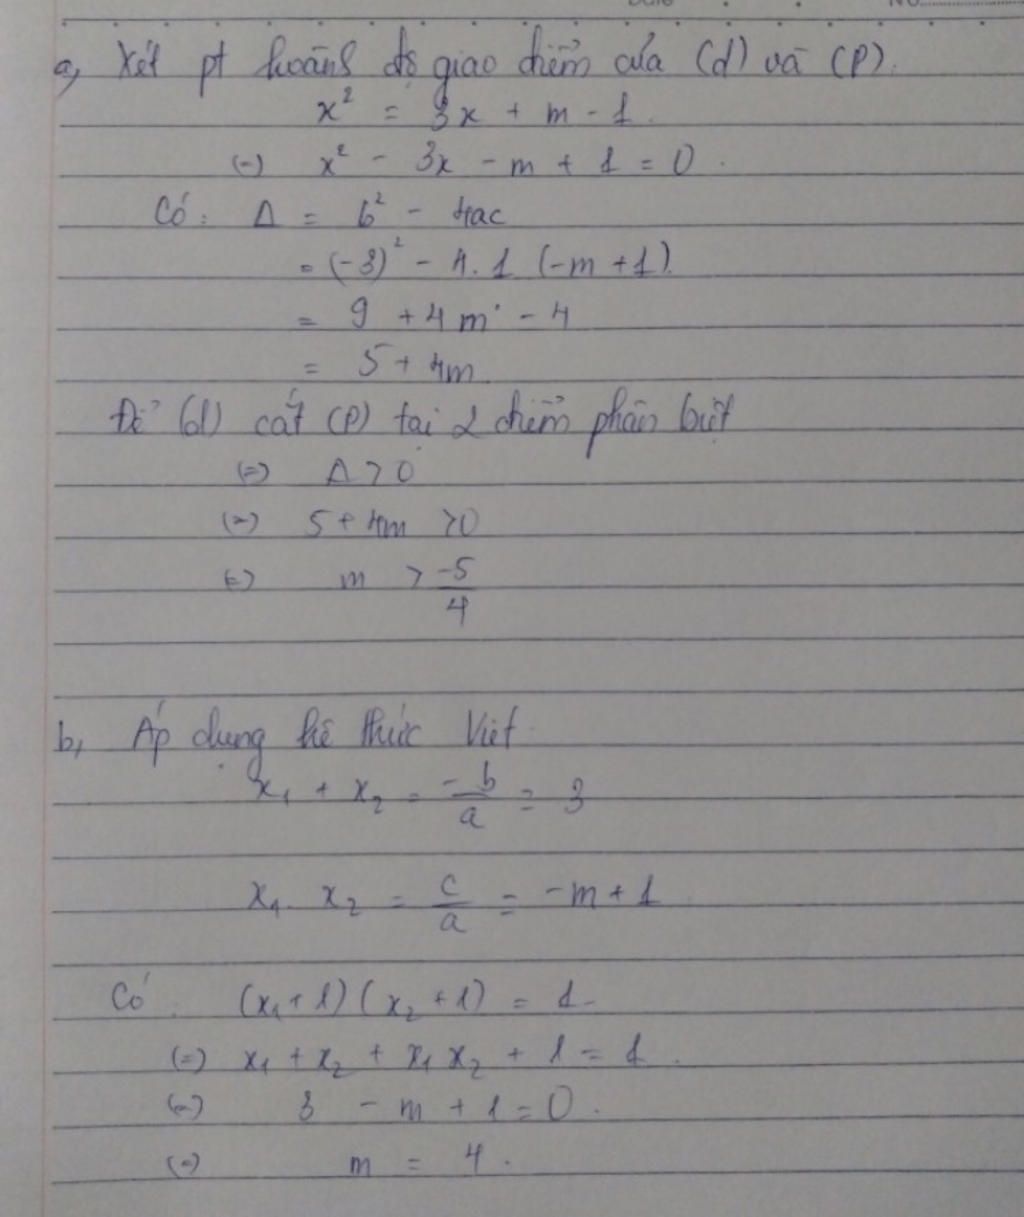 Date No
a, Xét pt hoành độ giao điểm của (d) và (P).
x² = 3x + m - 1.
(=) x² - 3x - m + 1 = 0.
Có: Δ = b² - 4ac
= (-3)² - 4.1 (-m + 1).
= 9 + 4m - 4
= 5 + 4m
Để (d) cắt (P) tại 2 điểm phân biệt
(=) Δ > 0
(=) 5 + 4m > 0
(=) m > -5/4
b, Áp dụng hệ thức Viét
x₁ + x₂ = -b/a = 3
x₁. x₂ = c/a = -m + 1
Có: (x₁ + 1)(x₂ + 1) = 1
(=) x₁ + x₂ + x₁x₂ + 1 = 1.
(=) 3 - m + 1 = 0.
(=) m = 4.